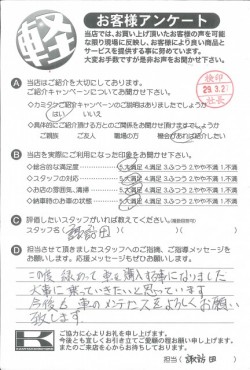 軽
お客様アンケート
当店では、お買い上げ頂いたお客様の声を可能
な限り現場に反映し、お客様により良い商品と
サービスを提供する事に努めています。
大変お手数ですが是非お声をお聞かせ下さい。
検印
29.3.2
社長
A 当店はご紹介を大切にしております。
ご紹介キャンペーンについてお聞かせ下さい。
◇カミタケご紹介キャンペーンのご説明はありましたでしょうか
はい いいえ
◇具体的にご紹介頂ける方との
ご親族 ご友人 職場の方 機会があれば紹介したい
B 当店を実際にご利用になった印象をお聞かせ下さい。
◇総合的な満足度 5.大満足 4.満足 3.ふつう 2.やや不満 1.不満
◇スタッフの対応 5.大満足 4.満足 3.ふつう 2.やや不満 1.不満
◇お店の雰囲気、清掃 5.大満足 4.満足 3.ふつう 2.やや不満 1.不満
◇納車時のお車の状態 5.大満足 4.満足 3.ふつう 2.やや不満 1.不満
C 評価したいスタッフがいれば教えてください。
スタッフ名( 諏訪田 )
D 担当させて頂きましたスタッフへのご指摘、ご指導メッセージを
お願いします。応援メッセージもぜひお願いします。
この度 車を購入する事になりました
大事に乗っていきたいと思っています
今後も車のメンテナンスをよろしくお願い
致します
K
ご協力に心よりお礼を申し上げます。
今後とも宜しくお引き立てご愛顧の程お願い申し上げます。
またのご来店を心からお待ちしております。
担当( 諏訪田 )